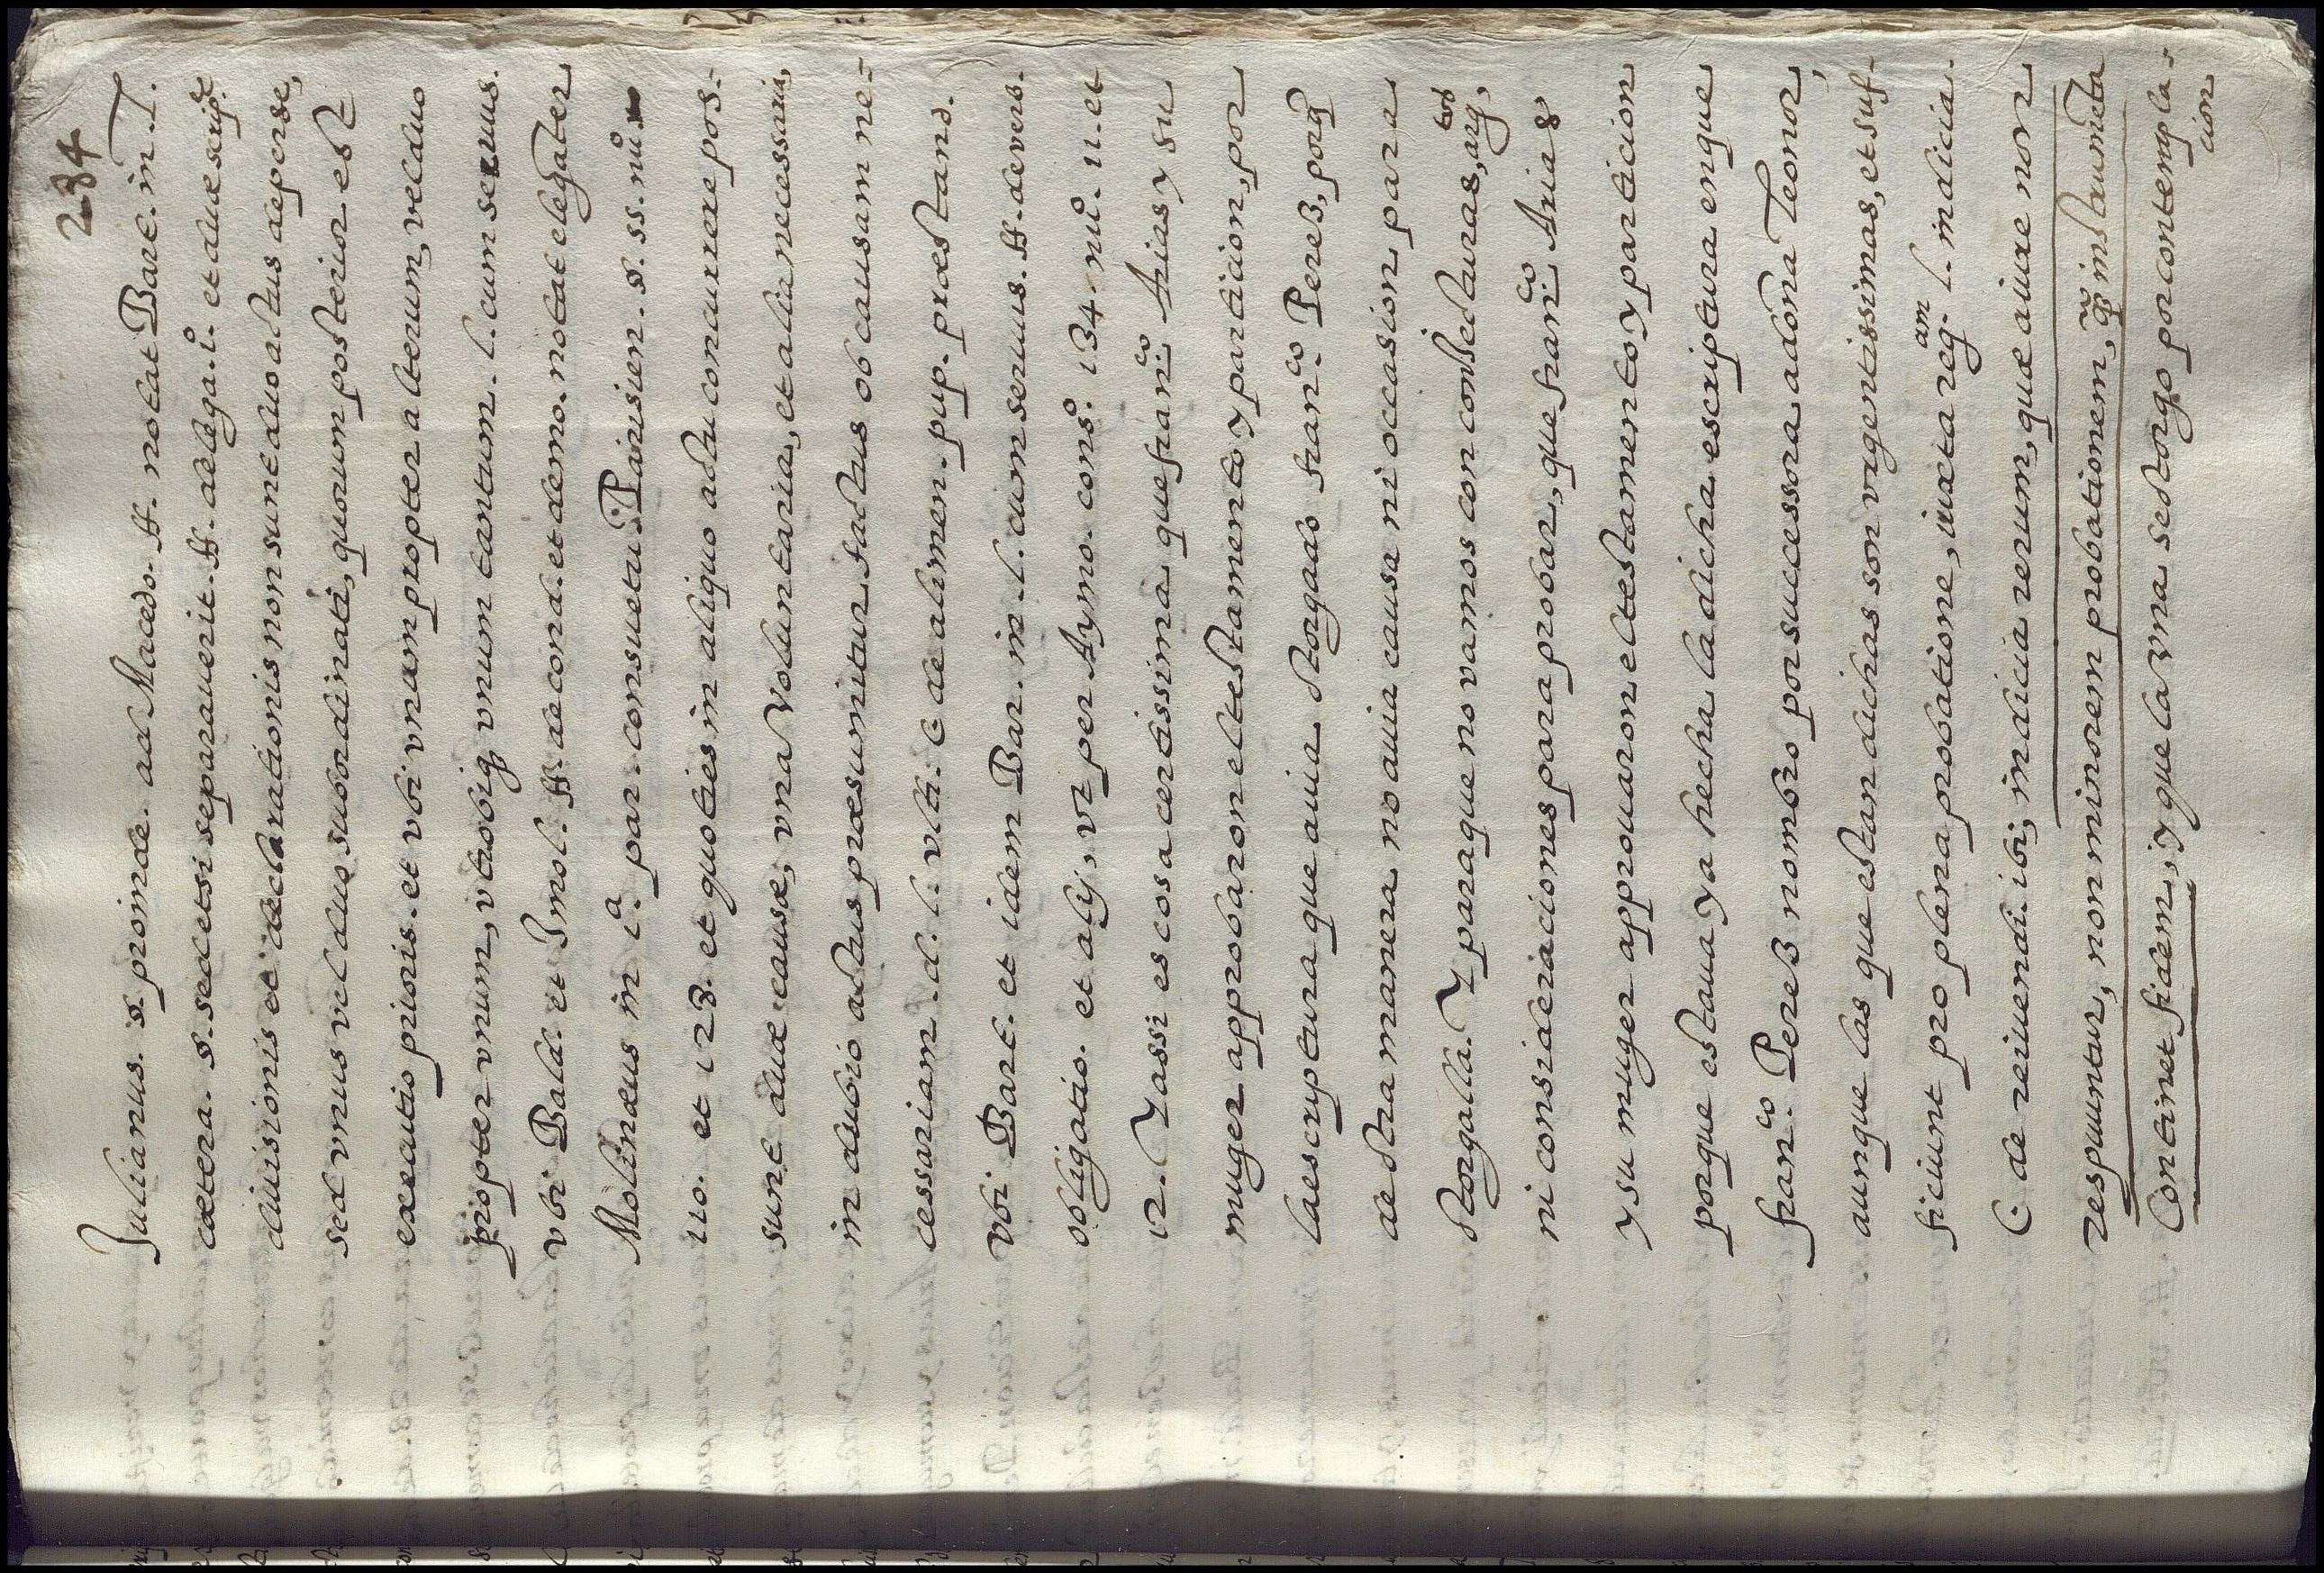 284
Julianus. §. proinde. ad Macedo. ff. notat Bart. in l.
cætera. §. sed et si separauerit. ff. de lega. 1.º et duæ scrip.ᵃᵉ
diuisionis et declarationis non sunt duo actus de per se,
sed unus vel duo subordinati, quorum posterior est
executio prioris. et vbi vnum propter alterum, vel duo
propter vnum, vtrobiq vnum tantum. l. cum seruus.
vbi Bald. et Imol. ff. de cond. et demo. notat elegater
Molinæus in 1.ᵃ par. consuetu. Parisien. §. 55. nu.º
110. et 123. et quoties in aliquo actu concurrere pos-
sunt duæ causæ, vna voluntaria, et alia necessaria,
in dubio actus præsumitur factus ob causam ne-
cessariam. d. l. vlti. C de alimen. pup. præstand.
vbi Bart. et idem Bar. in l. cum seruus. ff. de verb.
obligatio. et alij, vt per Aymo. cons.º 134. nu.º 11. et
12. Y assi es cosa certissima que fran.ᶜᵒ Arias y su
muger approbaron el testamento y particion, por
la escryptura que auia otorgado fran.ᶜᵒ Pereß, porq
de otra manera no auia causa ni occasion para
otorgalla. Y para que no vamos con conjecturas, arg,ᵗᵒˢ
ni consideraciones para probar, que fran.ᶜᵒ Arias
y su muger approuaron el testamento y particion
porque estaua ya hecha la dicha escriptura en que
fran.ᶜᵒ Pereß nombro por successora a doña Leonor,
aunque las que estan dichas son vrgentissimas, et suf-
ficiunt pro plena probatione, iuxta reg.ᵃᵐ l. indicia.
C. de reiuendi. ibi, indicia rerum, quæ a iure non
respuuntur, non minorem probationem, q̃ instrumẽta
continet fidem, y que la vna se otorgo por contempla-
cion